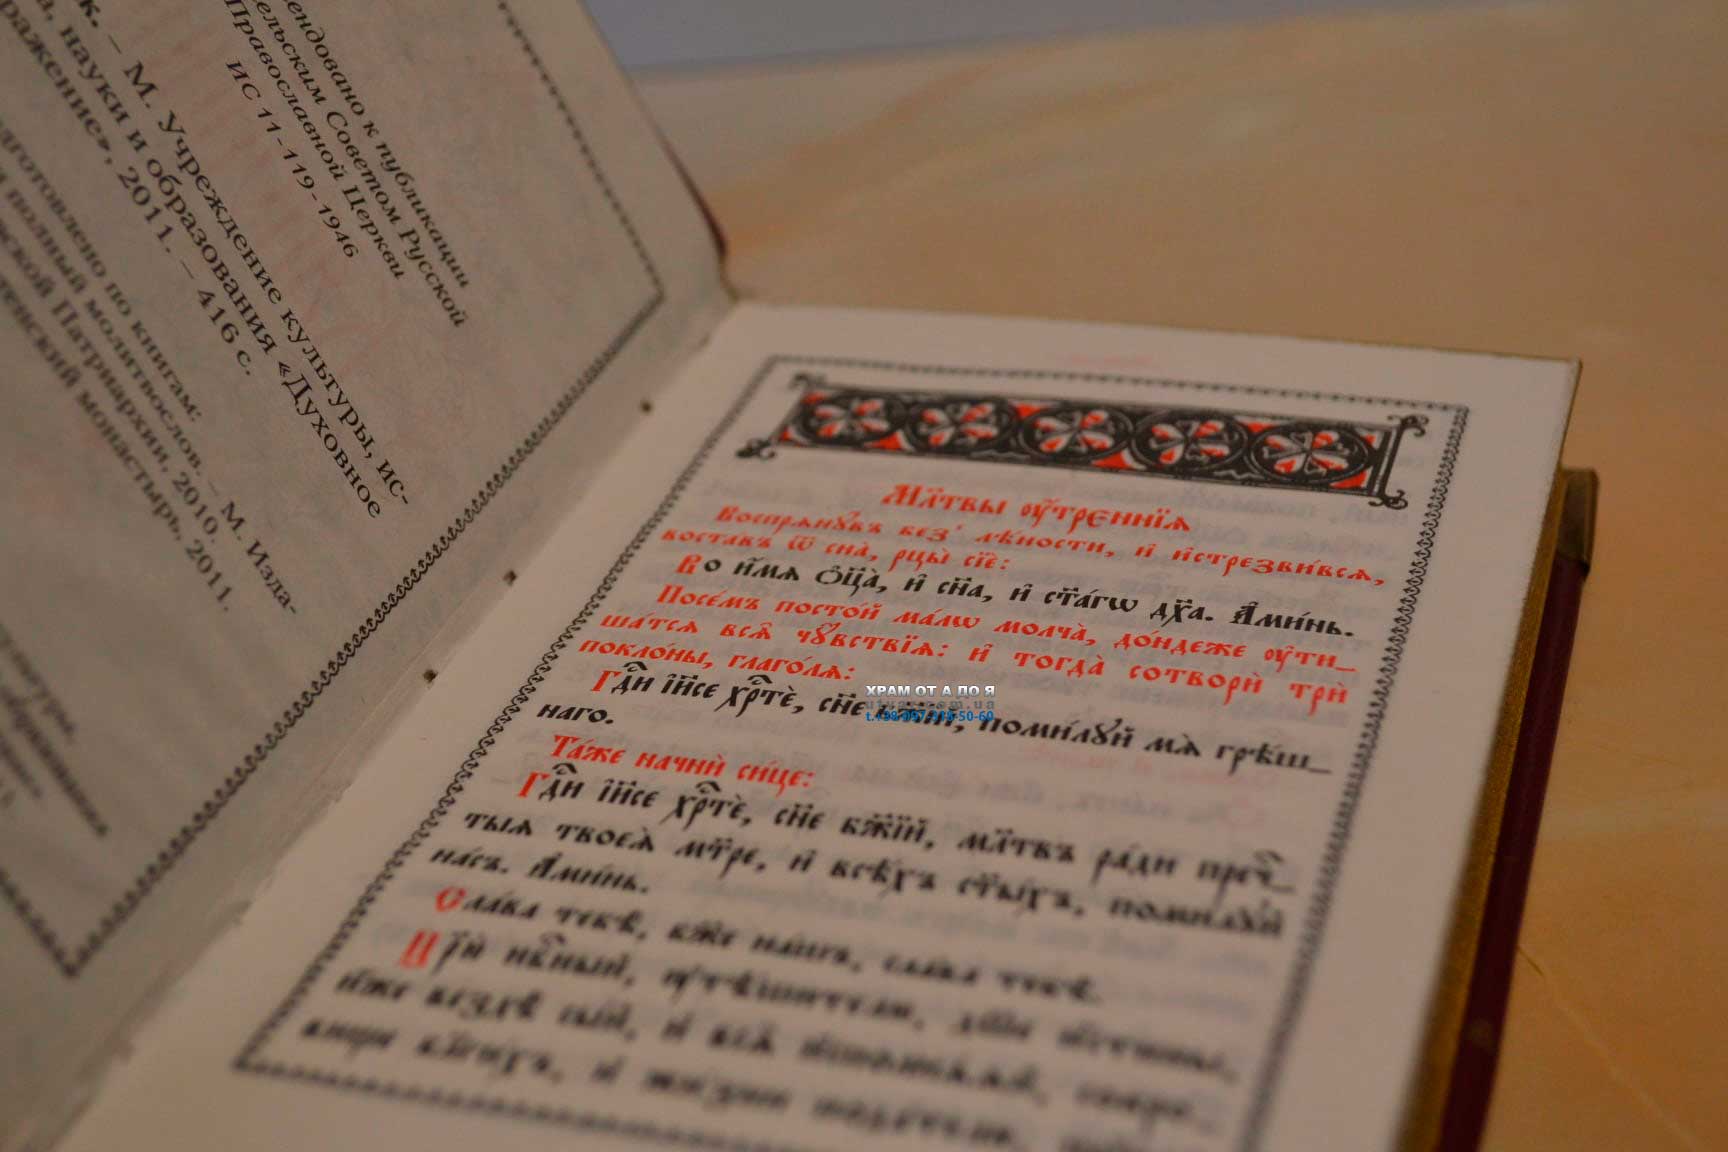 ендовано к публикации
ельским Советом Русской
Православной Церкви
ИС 11-119-1946
к. – М. Учреждение культуры, ис-
а, науки и образования «Духовное
ражение», 2011. – 416 с.
дготовлено по книгам:
полный молитвослов. – М. Изда-
ской Патриархии, 2010.
енский монастырь, 2011.
Мл҃твы ᲂу҆́трєннїѧ
Воспрѧнꙋ́въ без̾ лѣ́ности, и҆ и҆стрезви́всѧ,
воста́въ ѿ сна̀, рцы̀ сїѐ:
Во и҆́мѧ ѻ҆ц҃а̀, и҆ сн҃а, и҆ ст҃а́гѡ дх҃а. А҆ми́нь.
Посе́мъ посто́й ма́лѡ молча̀, до́ндеже ᲂу҆ти_
ша́тсѧ всѧ̑ чꙋ̑вствїѧ: и҆ тогда̀ сотворѝ трѝ
поклоны, глаго́лѧ:
Гдⷭ҇и і҆и҃се хрⷭ҇тѐ, сн҃е бж҃їй, поми́лꙋй мѧ грѣ́ш_
наго.
ХРАМ ОТ А ДО Я
Та́же начнѝ си́це:
Гдⷭ҇и і҆и҃се хрⷭ҇тѐ, сн҃е бж҃їй, мл҃твъ ра́ди преⷭ҇ч_
тыѧ твоеѧ̀ мт҃ре, и҆ всѣ́хъ ст҃ы́хъ, поми́лꙋй
на́съ. А҆ми́нь.
Сла́ва тебѣ̀, бж҃е на́шъ, сла́ва тебѣ̀.
Цр҃ю̀ нбⷭ҇ный, ᲂу҆тѣ́шителю, дш҃е и҆́стины,
и҆́же вездѣ̀ сы́й, и҆ всѧ̑ и҆сполнѧ́ѧй, сокро_
вище бл҃ги́хъ, и҆ жи́зни пода́телю,